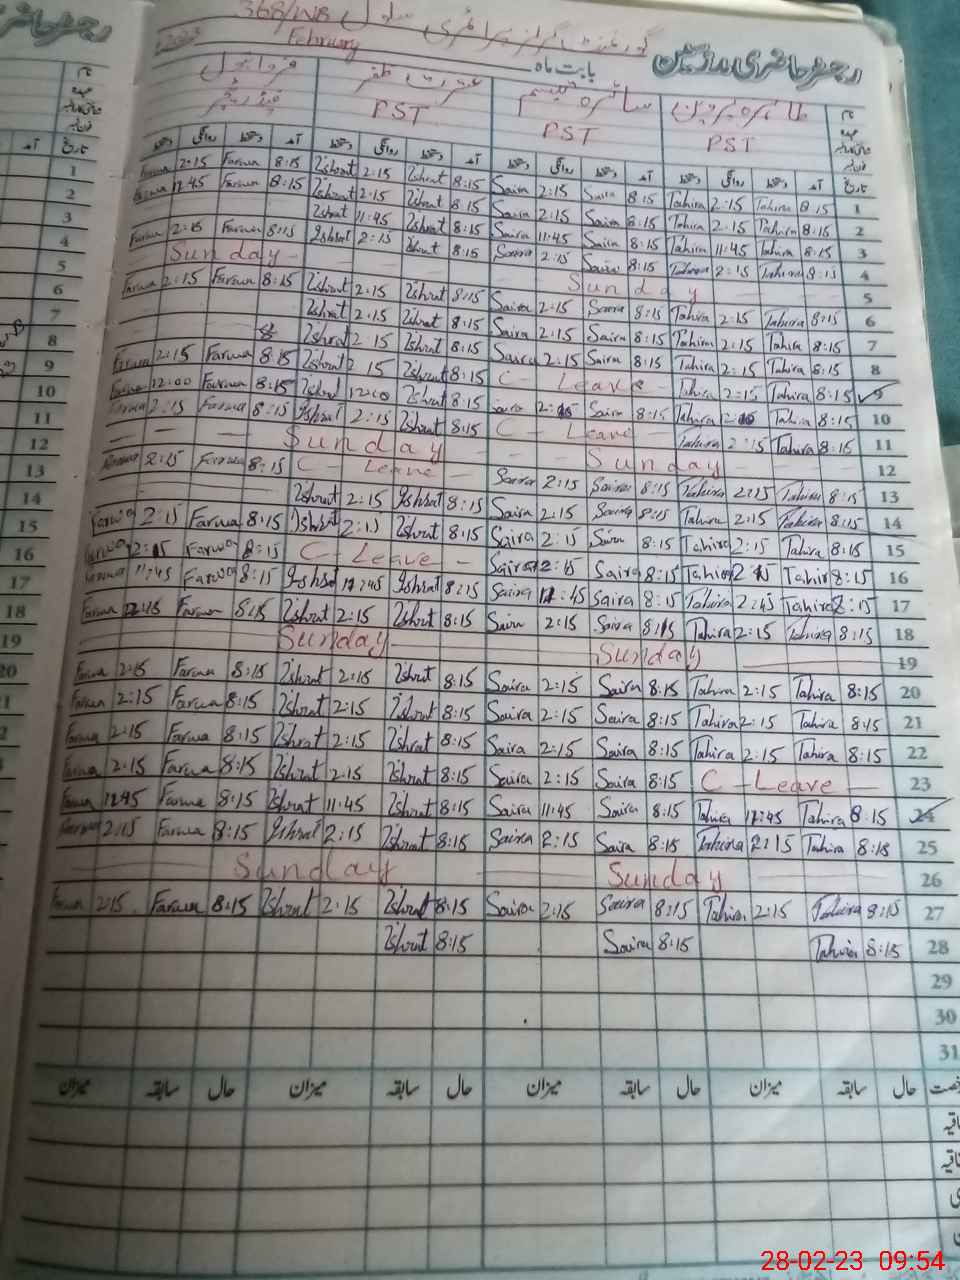 رجسٹر حاضری مدرسین
گورنمنٹ گرلز پرائمری سکول 368/WB
بابت ماہ February 2023
طاہرہ پروین سائرہ تبسم عشرت ظفر
PST PST PST
تاریخ آمد دستخط روانگی دستخط آمد دستخط روانگی دستخط آمد دستخط روانگی دستخط آمد دستخط روانگی دستخط
Farwa 2:15 Farwa 8:15 Ishrat 2:15 Ishrat 8:15 Saira 2:15 Saira 8:15 Tahira 2:15 Tahira 8:15 1
Farwa 12:45 Farwa 8:15 Ishrat 2:15 Ishrat 8:15 Saira 2:15 Saira 8:15 Tahira 2:15 Tahira 8:15 2
Ishrat 11:45 Ishrat 8:15 Saira 11:45 Saira 8:15 Tahira 11:45 Tahira 8:15 3
Farwa 2:15 Farwa 8:15 Ishrat 2:15 Ishrat 8:15 Saira 2:15 Saira 8:15 Tahira 2:15 Tahira 8:15 4
Sunday Sunday 5
Farwa 2:15 Farwa 8:15 Ishrat 2:15 Ishrat 8:15 Saira 2:15 Saira 8:15 Tahira 2:15 Tahira 8:15 6
Ishrat 2:15 Ishrat 8:15 Saira 2:15 Saira 8:15 Tahira 2:15 Tahira 8:15 7
Ishrat 2:15 Ishrat 8:15 Saira 2:15 Saira 8:15 Tahira 2:15 Tahira 8:15 8
Farwa 2:15 Farwa 8:15 Ishrat 2:15 Ishrat 8:15 C - Leave - Tahira 2:15 Tahira 8:15 9
Farwa 12:00 Farwa 8:15 Ishrat 12:00 Ishrat 8:15 Saira Saira 8:15 Tahira Tahira 8:15 10
Farwa 2:15 Farwa 8:15 Ishrat 2:15 Ishrat 8:15 C - Leave - Tahira 2:15 Tahira 8:15 11
Sunday Sunday 12
Farwa 2:15 Farwa 8:15 C - Leave - Saira 2:15 Saira 8:15 Tahira 2:15 Tahira 8:15 13
Ishrat 2:15 Ishrat 8:15 Saira 2:15 Saira 8:15 Tahira 2:15 Tahira 8:15 14
Farwa 2:15 Farwa 8:15 Ishrat 2:15 Ishrat 8:15 Saira 2:15 Saira 8:15 Tahira 2:15 Tahira 8:15 15
Farwa 2:15 Farwa 8:15 C - Leave - Saira 2:15 Saira 8:15 Tahira 2:15 Tahira 8:15 16
Farwa 11:45 Farwa 8:15 Ishrat 11:45 Ishrat 8:15 Saira 11:45 Saira 8:15 Tahira 2:45 Tahira 8:15 17
Farwa Farwa 8:15 Ishrat 2:15 Ishrat 8:15 Saira 2:15 Saira 8:15 Tahira 2:15 Tahira 8:15 18
Sunday Sunday 19
Farwa 2:15 Farwa 8:15 Ishrat 2:15 Ishrat 8:15 Saira 2:15 Saira 8:15 Tahira 2:15 Tahira 8:15 20
Farwa 2:15 Farwa 8:15 Ishrat 2:15 Ishrat 8:15 Saira 2:15 Saira 8:15 Tahira 2:15 Tahira 8:15 21
Farwa 2:15 Farwa 8:15 Ishrat 2:15 Ishrat 8:15 Saira 2:15 Saira 8:15 Tahira 2:15 Tahira 8:15 22
Farwa 2:15 Farwa 8:15 Ishrat 2:15 Ishrat 8:15 Saira 2:15 Saira 8:15 C - Leave - 23
Farwa 11:45 Farwa 8:15 Ishrat 11:45 Ishrat 8:15 Saira 11:45 Saira 8:15 Tahira 11:45 Tahira 8:15 24
Farwa 2:15 Farwa 8:15 Ishrat 2:15 Ishrat 8:15 Saira 2:15 Saira 8:15 Tahira 2:15 Tahira 8:15 25
Sunday Sunday 26
Farwa 2:15 Farwa 8:15 Ishrat 2:15 Ishrat 8:15 Saira 2:15 Saira 8:15 Tahira 2:15 Tahira 8:15 27
Ishrat 8:15 Saira 8:15 Tahira 8:15 28
29
30
31
حال سابقہ میزان حال سابقہ میزان حال سابقہ میزان
28-02-23 09:54